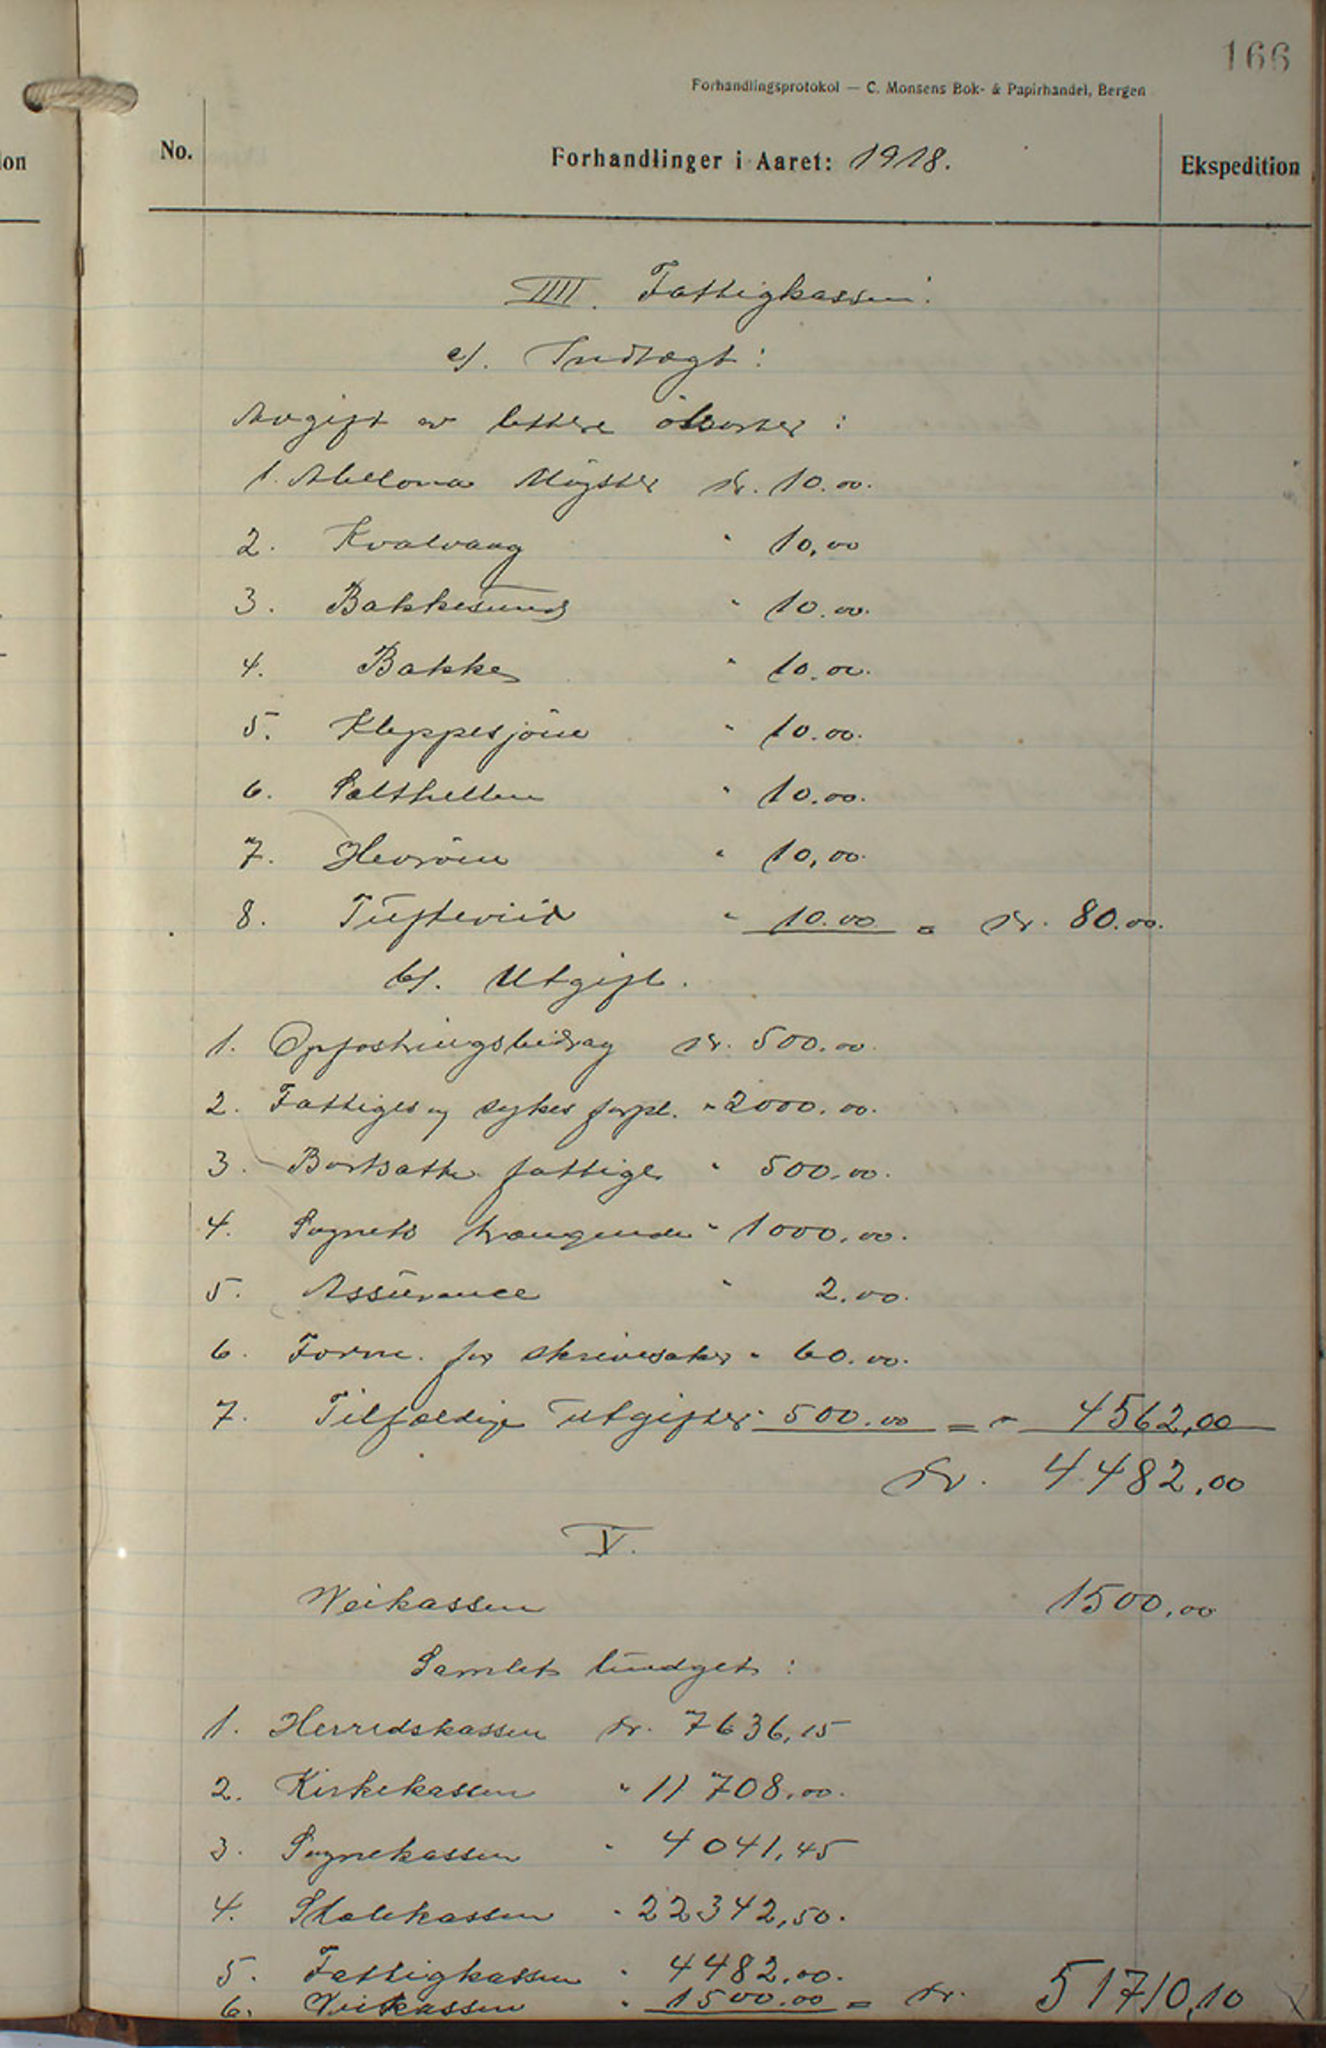 166
Forhandlingsprotokol — C. Monsens Bok- & Papirhandel, Bergen
ion
No.
Forhandlinger i Aaret: 1918.
Ekspedition
IIII. Fattigkassen:
a). Indtægt:
Avgift av lettere ölsorter:
1. Møgster kr. 10.00.
2. Kvalvaag " 10,00
3. Bakkesund " 10.00.
4. Bakke " 10.00.
5. Kleppesjöen " 10.00.
6. Salthellen " 10.00.
7. Hevröen " 10,00.
8. Tufteviik " 10.00 = kr. 80.00.
b). Utgift.
1. Opfostringsbidrag kr. 500.00.
2. Fattiges og sykes forpl. " 2000.00.
3. Bortsatte fattige " 500.00.
4. Sognets trængende " 1000.00.
5. Assurance " 2.00.
6. Form. for skrivesaker " 60.00.
7. Tilfældige utgifter " 500.00 = " 4562,00
kr. 4482,00
V.
Veikassen 1500,00
Samlet budget:
1. Herredskassen kr. 7636,15
2. Kirkekassen " 11708.00.
3. Sognekassen " 4041,45
4. Skolekassen " 22342,50.
5. Fattigkassen " 4482.00.
6. Veikassen " 1500.00 = kr. 51710,10